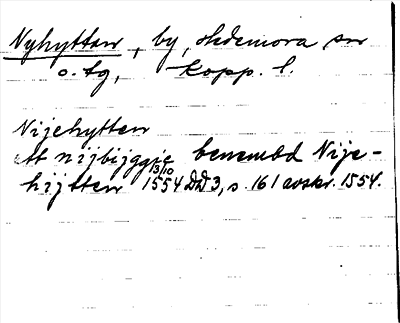 Nyhyttan, by, Hedemora sn
o. tg, Kopp. l.
Nijehytten
ett nijbijggie benembd Nije-
hijtten 13/10 1554 DD 3, s. 161 avskr. 1554.